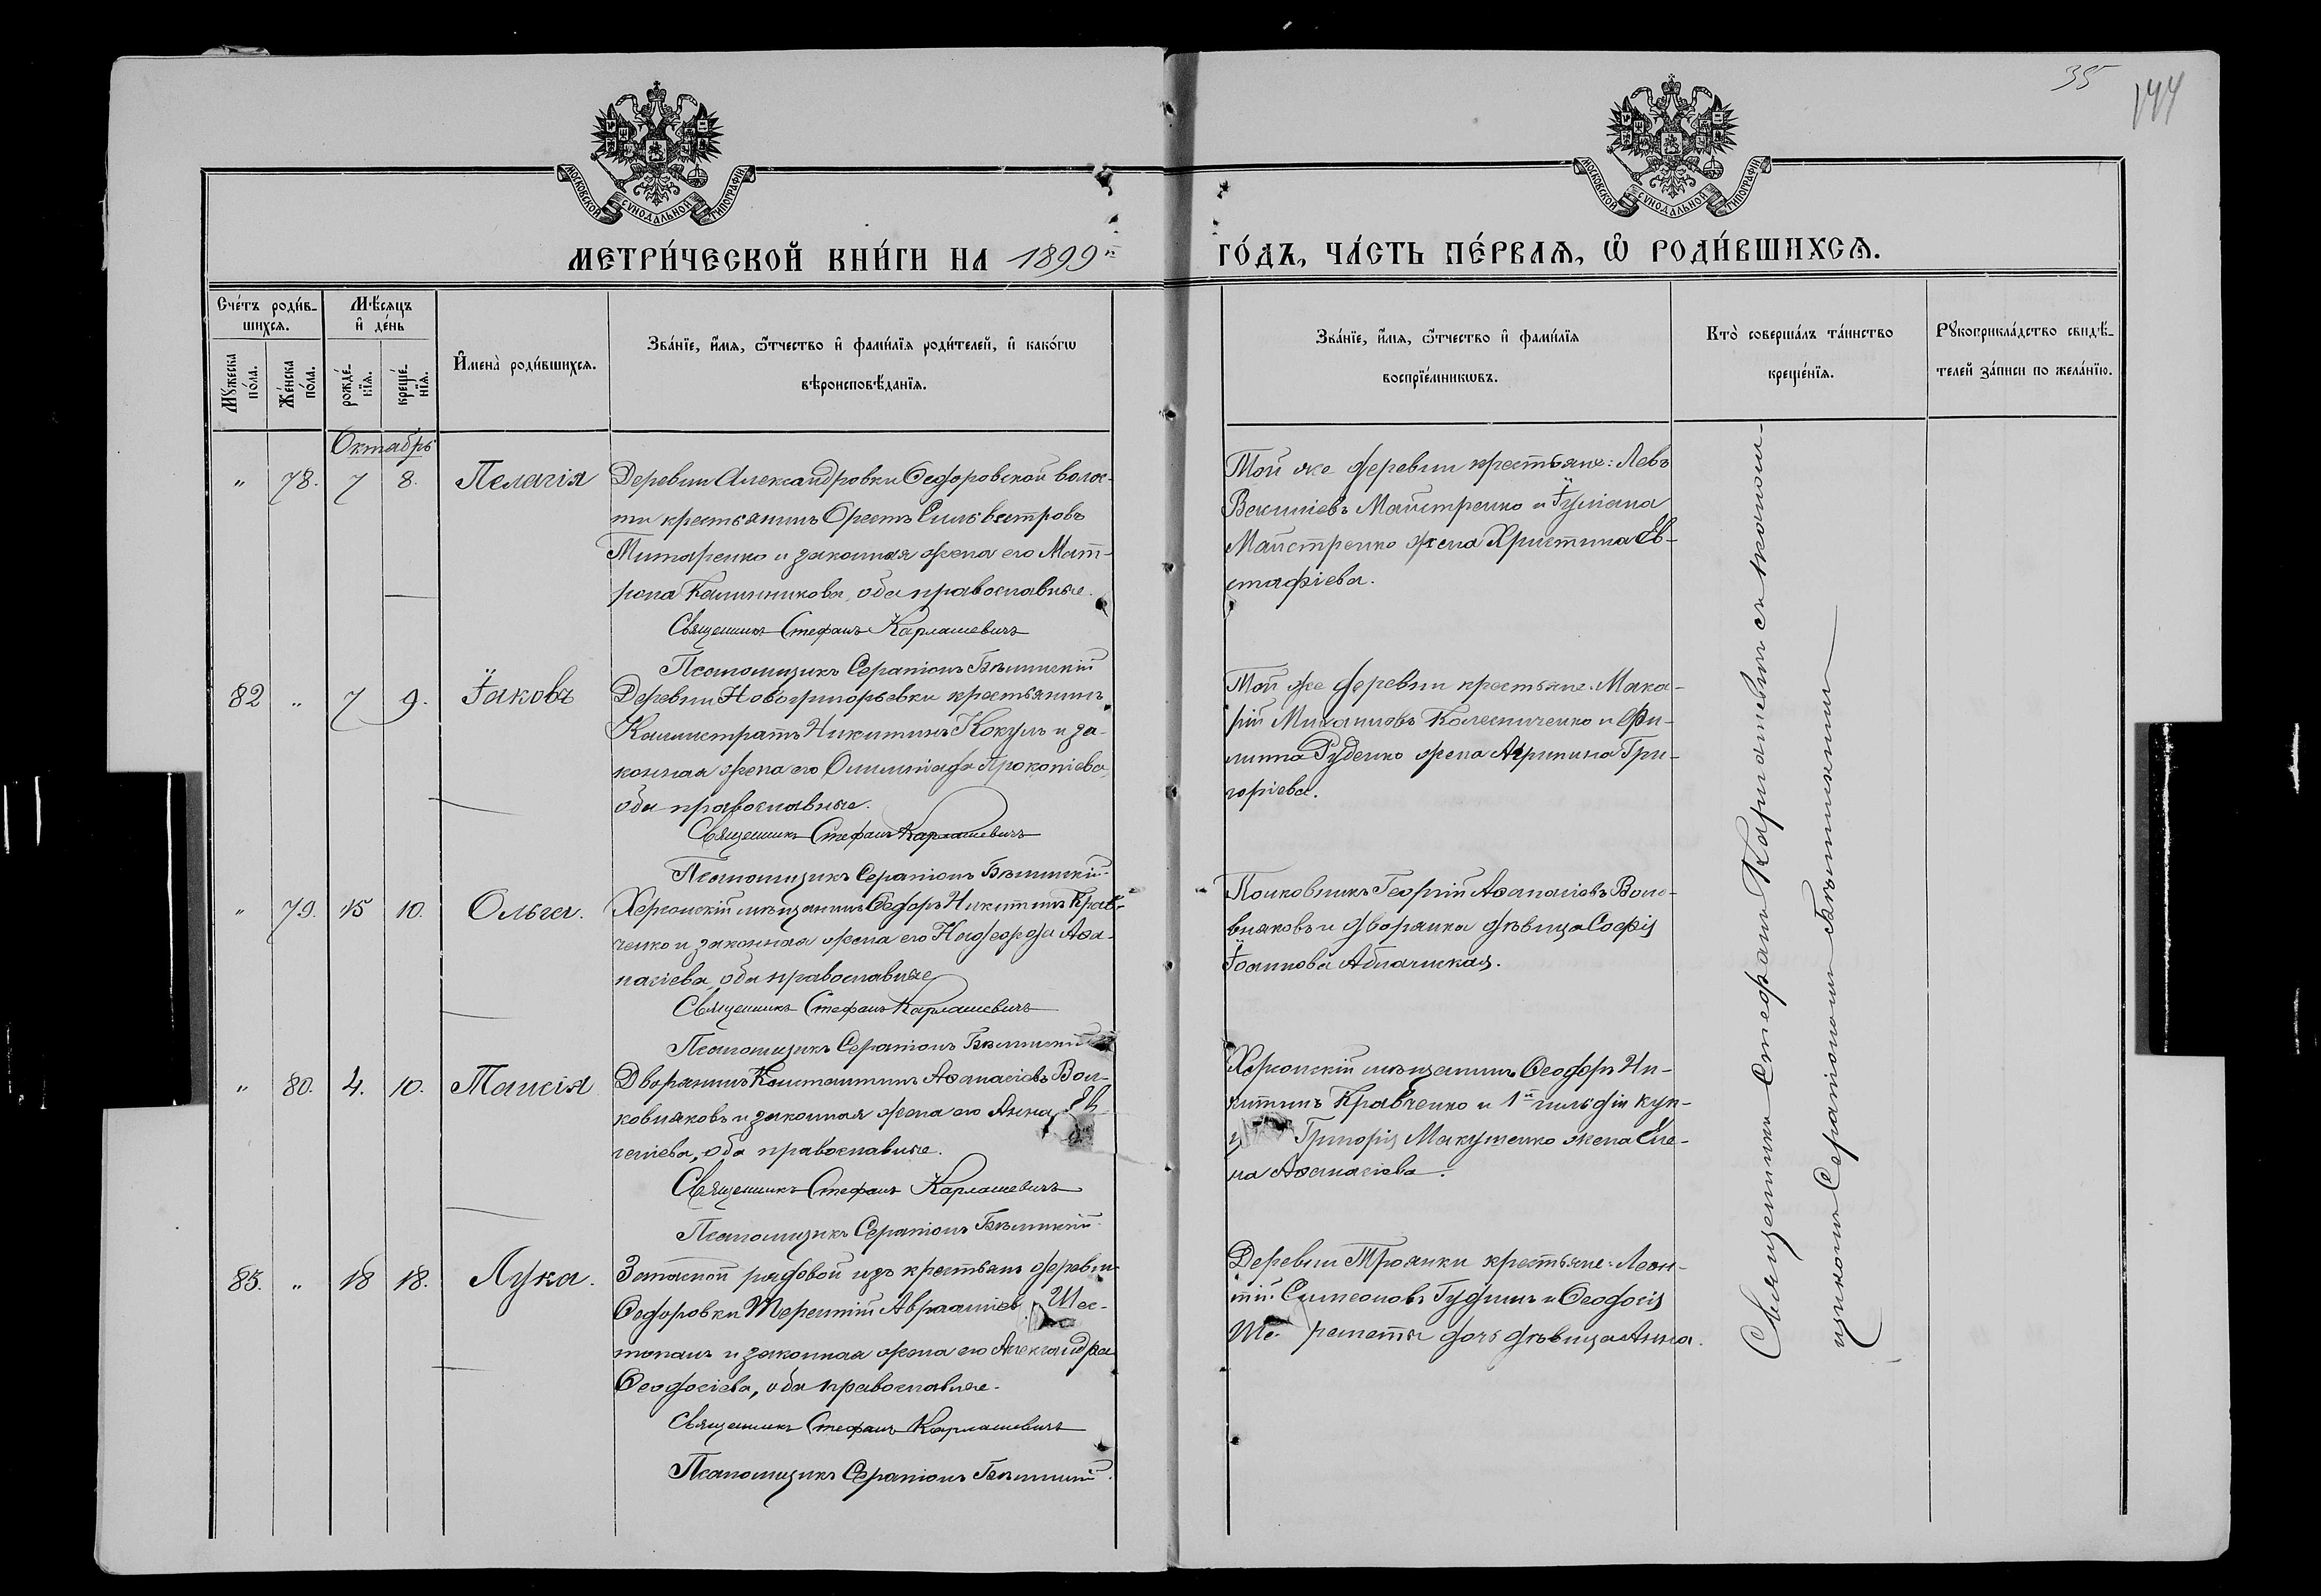 35
144
МОСКОВСКОЙ СѴНОДАЛЬНОЙ ТИПОГРАФІИ
МОСКОВСКОЙ СѴНОДАЛЬНОЙ ТИПОГРАФІИ
МЕТРИ́ЧЕСКОЙ КНИ́ГИ НА 1899й
ГО́ДЪ, ЧА́СТЬ ПЕ́РВАѦ, Ѽ РОДИ́ВШИХСѦ.
Сче́тъ роди́в-
шихсѧ.
Мѣ́сѧцъ
и҆ де́нь
Мꙋ́жеска по́ла.
Же́нска по́ла.
рожде́-
нїѧ.
креще́-
нїѧ.
И҆мена̀ роди́вшихсѧ.
Зва́нїе, и҆́мѧ, ѻ҆́тчество и҆ фами́лїѧ роди́телей, и҆ како́гѡ
вѣроисповѣ́данїѧ.
Зва́нїе, и҆́мѧ, ѻ҆́тчество и҆ фами́лїѧ
воспрїе́мникѡвъ.
Кто̀ соверша́лъ та́инство
креще́нїѧ.
Рꙋкоприкла́дство свидѣ́-
телей за́писи по жела́нїю.
Октябрь
" 78. 7 8. Пелагія
Деревни Александровки Ѳедоровской волос-
ти крестьянинъ Орестъ Сильвестровъ
Титаренко и законная жена его Мат-
рона Калинникова, оба православные.
Священникъ Стефанъ Карлашевичъ
Псаломщикъ Серапіонъ Бѣлинскій
Той же деревни крестьяне: Левъ
Майстренко и Іуліана
Майстренко жена Христина Ев-
стафіева.
82 " 7 9. Іаковъ
Деревни Новогригорьевки крестьянинъ
Каллистратъ Никитинъ Кокулъ и за-
конная жена его Олимпіада Прокопіева,
оба православные.
Священникъ Стефанъ Карлашевичъ
Псаломщикъ Серапіонъ Бѣлинскій
Той же деревни крестьяне: Мака-
рій Михаиловъ Колесниченко и Фи-
липпа Руденко жена Агрипина Гри-
горіева.
" 79. 15 10. Ольга.
Херсонскій мѣщанинъ Ѳедоръ Никитинъ Крав-
ченко и законная жена его Аѳа-
насіева, оба православные
Священникъ Стефанъ Карлашевичъ
Псаломщикъ Серапіонъ Бѣлинскій
Полковникъ Георгій Аѳанасіевъ Вол-
вняковъ и дворянка дѣвица Софія
Іоаннова
" 80. 4. 10. Таисія
Дворянинъ Константинъ Аѳанасіевъ Вол-
ковняковъ и законная жена его Анна Ев-
геніева, оба православные.
Священникъ Стефанъ Карлашевичъ
Псаломщикъ Серапіонъ Бѣлинскій
Херсонскій мѣщанинъ Ѳеодоръ Ни-
китинъ Кравченко и 1й гильдіи куп-
ц Григорія Макушенко жена Еле-
на Аѳанасіева.
83. " 18 18. Лука.
Запасной рядовой изъ крестьянъ деревни
Ѳедоровки Терентій Аврааміев Шес-
топалъ и законная жена его Александра
Ѳеодосіева, оба православные.
Священникъ Стефанъ Карлашевичъ
Псаломщикъ Серапіонъ Бѣлинскій
Деревни Троянки крестьяне: Леон-
тій Симеоновъ Гудимъ и Ѳеодосія
Ше- ремета дочь дѣвица Анна.
Священникъ Стефанъ Карлашевичъ съ псалом-
щикомъ Серапіономъ Бѣлинскимъ